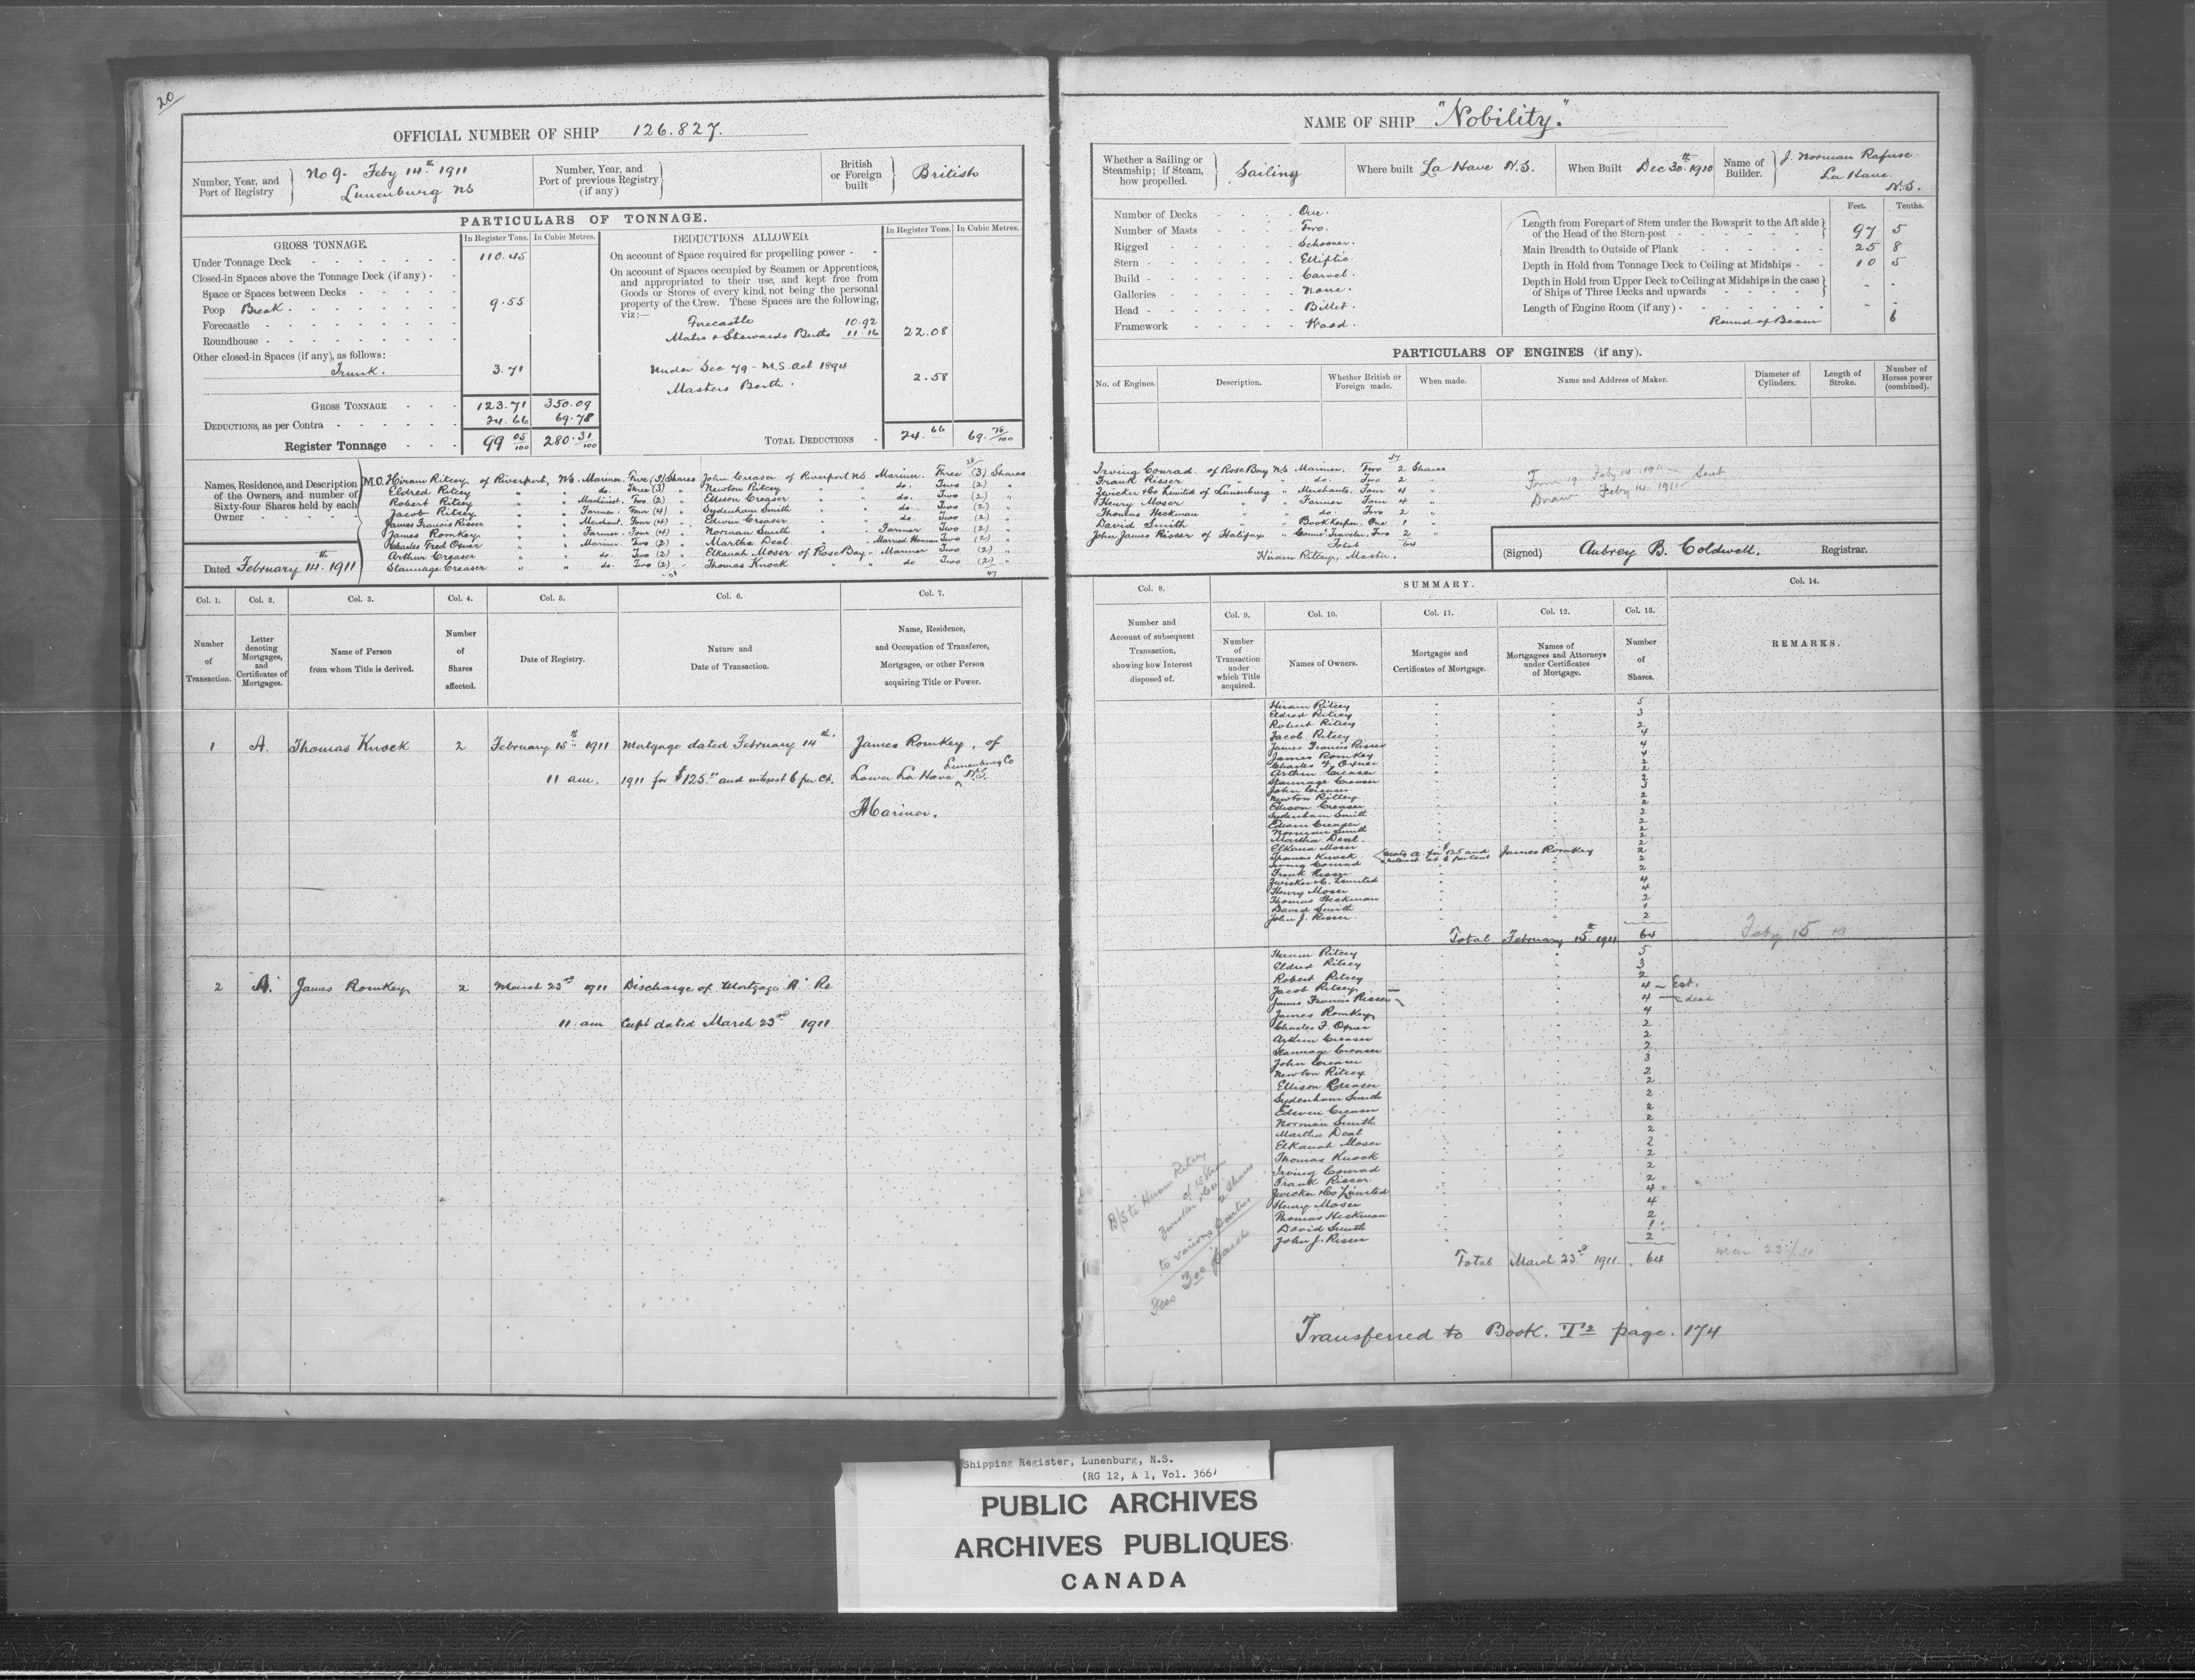 20
OFFICIAL NUMBER OF SHIP 126.827.
Number, Year, and Port of Registry No 9. Feby 14th 1911 Lunenburg NS
Number, Year, and Port of previous Registry (if any)
British or Foreign built British
PARTICULARS OF TONNAGE.
GROSS TONNAGE. In Register Tons. In Cubic Metres.
Under Tonnage Deck 110.45
Closed-in Spaces above the Tonnage Deck (if any)
Space or Spaces between Decks
Poop Break 9.55
Forecastle
Roundhouse
Other closed-in Spaces (if any), as follows:
Trunk. 3.71
GROSS TONNAGE 123.71 350.09
DEDUCTIONS, as per Contra 24.66 69.78
Register Tonnage 99 05/100 280.31/100
DEDUCTIONS ALLOWED. In Register Tons. In Cubic Metres.
On account of Space required for propelling power
On account of Spaces occupied by Seamen or Apprentices,
and appropriated to their use, and kept free from
Goods or Stores of every kind, not being the personal
property of the Crew. These Spaces are the following,
viz:—
Forecastle 10.92
Mates & Stewards Berths 11.16 22.08
Under Sec 79 - M.S. Act 1894
Masters Berth. 2.58
TOTAL DEDUCTIONS 24.66 69.78/100
Names, Residence, and Description of the Owners, and number of Sixty-four Shares held by each Owner
Dated February 14th. 1911
M.O. Hiram Ritcey of Riverport, NS. Mariner. Five (5) Shares
Eldred Ritcey " " do. Three (3) "
Robert Ritcey " " Machinist. Two (2) "
Jacob Ritcey " " Farmer. Four (4) "
James Francis Risser " " Merchant. Four (4) "
James Romkey " " Farmer. Four (4) "
Charles Fred Oxner " " Mariner. Two (2) "
Arthur Creaser " " do. Two (2) "
Stannage Creaser " " do. Two (2) "
John Creaser of Riverport NS Mariner. Three (3) Shares
Newton Ritcey " " do. Two (2) "
Ellison Creaser " " do. Two (2) "
Sydenham Smith " " do. Two (2) "
Edwin Creaser " " do. Two (2) "
Norman Smith " " Farmer Two (2) "
Martha Deal " " Married Woman Two (2) "
Elkanah Moser of Rose Bay " Mariner Two (2) "
Thomas Knock " " do Two (2) "
47
Col. 1. Col. 2. Col. 3. Col. 4. Col. 5. Col. 6. Col. 7.
Number of Transaction.
Letter denoting Mortgages, and Certificates of Mortgages.
Name of Person from whom Title is derived.
Number of Shares affected.
Date of Registry.
Nature and Date of Transaction.
Name, Residence, and Occupation of Transferee, Mortgagee, or other Person acquiring Title or Power.
1 A. Thomas Knock 2 February 15th 1911 Mortgage dated February 14th. James Romkey, of
11 am. 1911 for $125.00 and interest 6 per ct. Lower La Have, Lunenburg Co N.S.
Mariner.
2 "A" James Romkey 2 March 23rd 1911 Discharge of Mortgage "A" Re
11 am Ceipt dated March 23rd 1911
NAME OF SHIP "Nobility."
Whether a Sailing or Steamship; if Steam, how propelled. Sailing
Where built La Have N.S.
When Built Dec 30th. 1910
Name of Builder. J. Norman Rafuse. La Have. N.S.
Number of Decks One.
Number of Masts Two.
Rigged Schooner.
Stern Elliptic
Build Carvel.
Galleries None.
Head Billet.
Framework Wood.
Feet. Tenths.
Length from Forepart of Stem under the Bowsprit to the Aft side of the Head of the Stern-post 97 5
Main Breadth to Outside of Plank 25 8
Depth in Hold from Tonnage Deck to Ceiling at Midships 10 5
Depth in Hold from Upper Deck to Ceiling at Midships in the case of Ships of Three Decks and upwards - -
Length of Engine Room (if any) - -
Round of Beam 6
PARTICULARS OF ENGINES (if any).
No. of Engines. Description. Whether British or Foreign made. When made. Name and Address of Maker. Diameter of Cylinders. Length of Stroke. Number of Horses power (combined).
Irving Conrad of Rose Bay NS Mariner. Two 2 Shares
Frank Risser " " do. Two 2 "
Zwicker & Co Limited of Lunenburg " Merchants. Four 4 "
Henry Moser " " Farmer Four 4 "
Thomas Heckman " " do. Two 2 "
David Smith " " Book Keeper. One 1 "
John James Risser of Halifax " Coml. Traveler. Two 2 "
Total 64
Hiram Ritcey, Master.
Form 19 Feby 14. 1911 Sent
Draw Feby 14. 1911
(Signed) Aubrey B. Coldwell. Registrar.
Col. 8. SUMMARY. Col. 14.
Col. 9. Col. 10. Col. 11. Col. 12. Col. 13.
Number and Account of subsequent Transaction, showing how Interest disposed of.
Number of Transaction under which Title acquired.
Names of Owners.
Mortgages and Certificates of Mortgage.
Names of Mortgagees and Attorneys under Certificates of Mortgage.
Number of Shares.
REMARKS.
Hiram Ritcey 5
Eldred Ritcey 3
Robert Ritcey 2
Jacob Ritcey 4
James Francis Risser 4
James Romkey 4
Charles F. Oxner 2
Arthur Creaser 2
Stannage Creaser 2
John Creaser 3
Newton Ritcey 2
Ellison Creaser 2
Sydenham Smith 2
Edwin Creaser 2
Norman Smith 2
Martha Deal. 2
Elkana Moser 2
Thomas Knock Mortg A for $125 and interest at 6 per cent James Romkey 2
Irving Conrad 2
Frank Risser 2
Zwicker & Co. Limited 4
Henry Moser 4
Thomas Heckman 2
David Smith 1
John J. Risser. 2
Total February 15th. 1911 64 Feby 15
Hiram Ritcey 5
Eldred Ritcey 3
Robert Ritcey 2
Jacob Ritcey 4 — Est.
James Francis Risser 4
James Romkey 4
Charles F. Oxner 2
Arthur Creaser 2
Stannage Creaser 2
John Creaser 3
Newton Ritcey 2
Ellison Creaser 2
Sydenham Smith 2
Edwin Creaser 2
Norman Smith 2
Martha Deal 2
Elkanah Moser 2
Thomas Knock 2
Irving Conrad 2
Frank Risser 2
Zwicker & Co Limited 4
Henry Moser 4
Thomas Heckman 2
David Smith 1
John J. Risser 2
Total March 23rd 1911. 64 Mar 23/11
B/S to Hiram Ritcey
of 15 Shs
Zwicker & Co 2 Shares
to various parties
Fees 3.00
Transferred to Book. T2 page. 174
Shipping Register, Lunenburg, N.S.
(RG 12, A 1, Vol. 366)
PUBLIC ARCHIVES
ARCHIVES PUBLIQUES
CANADA